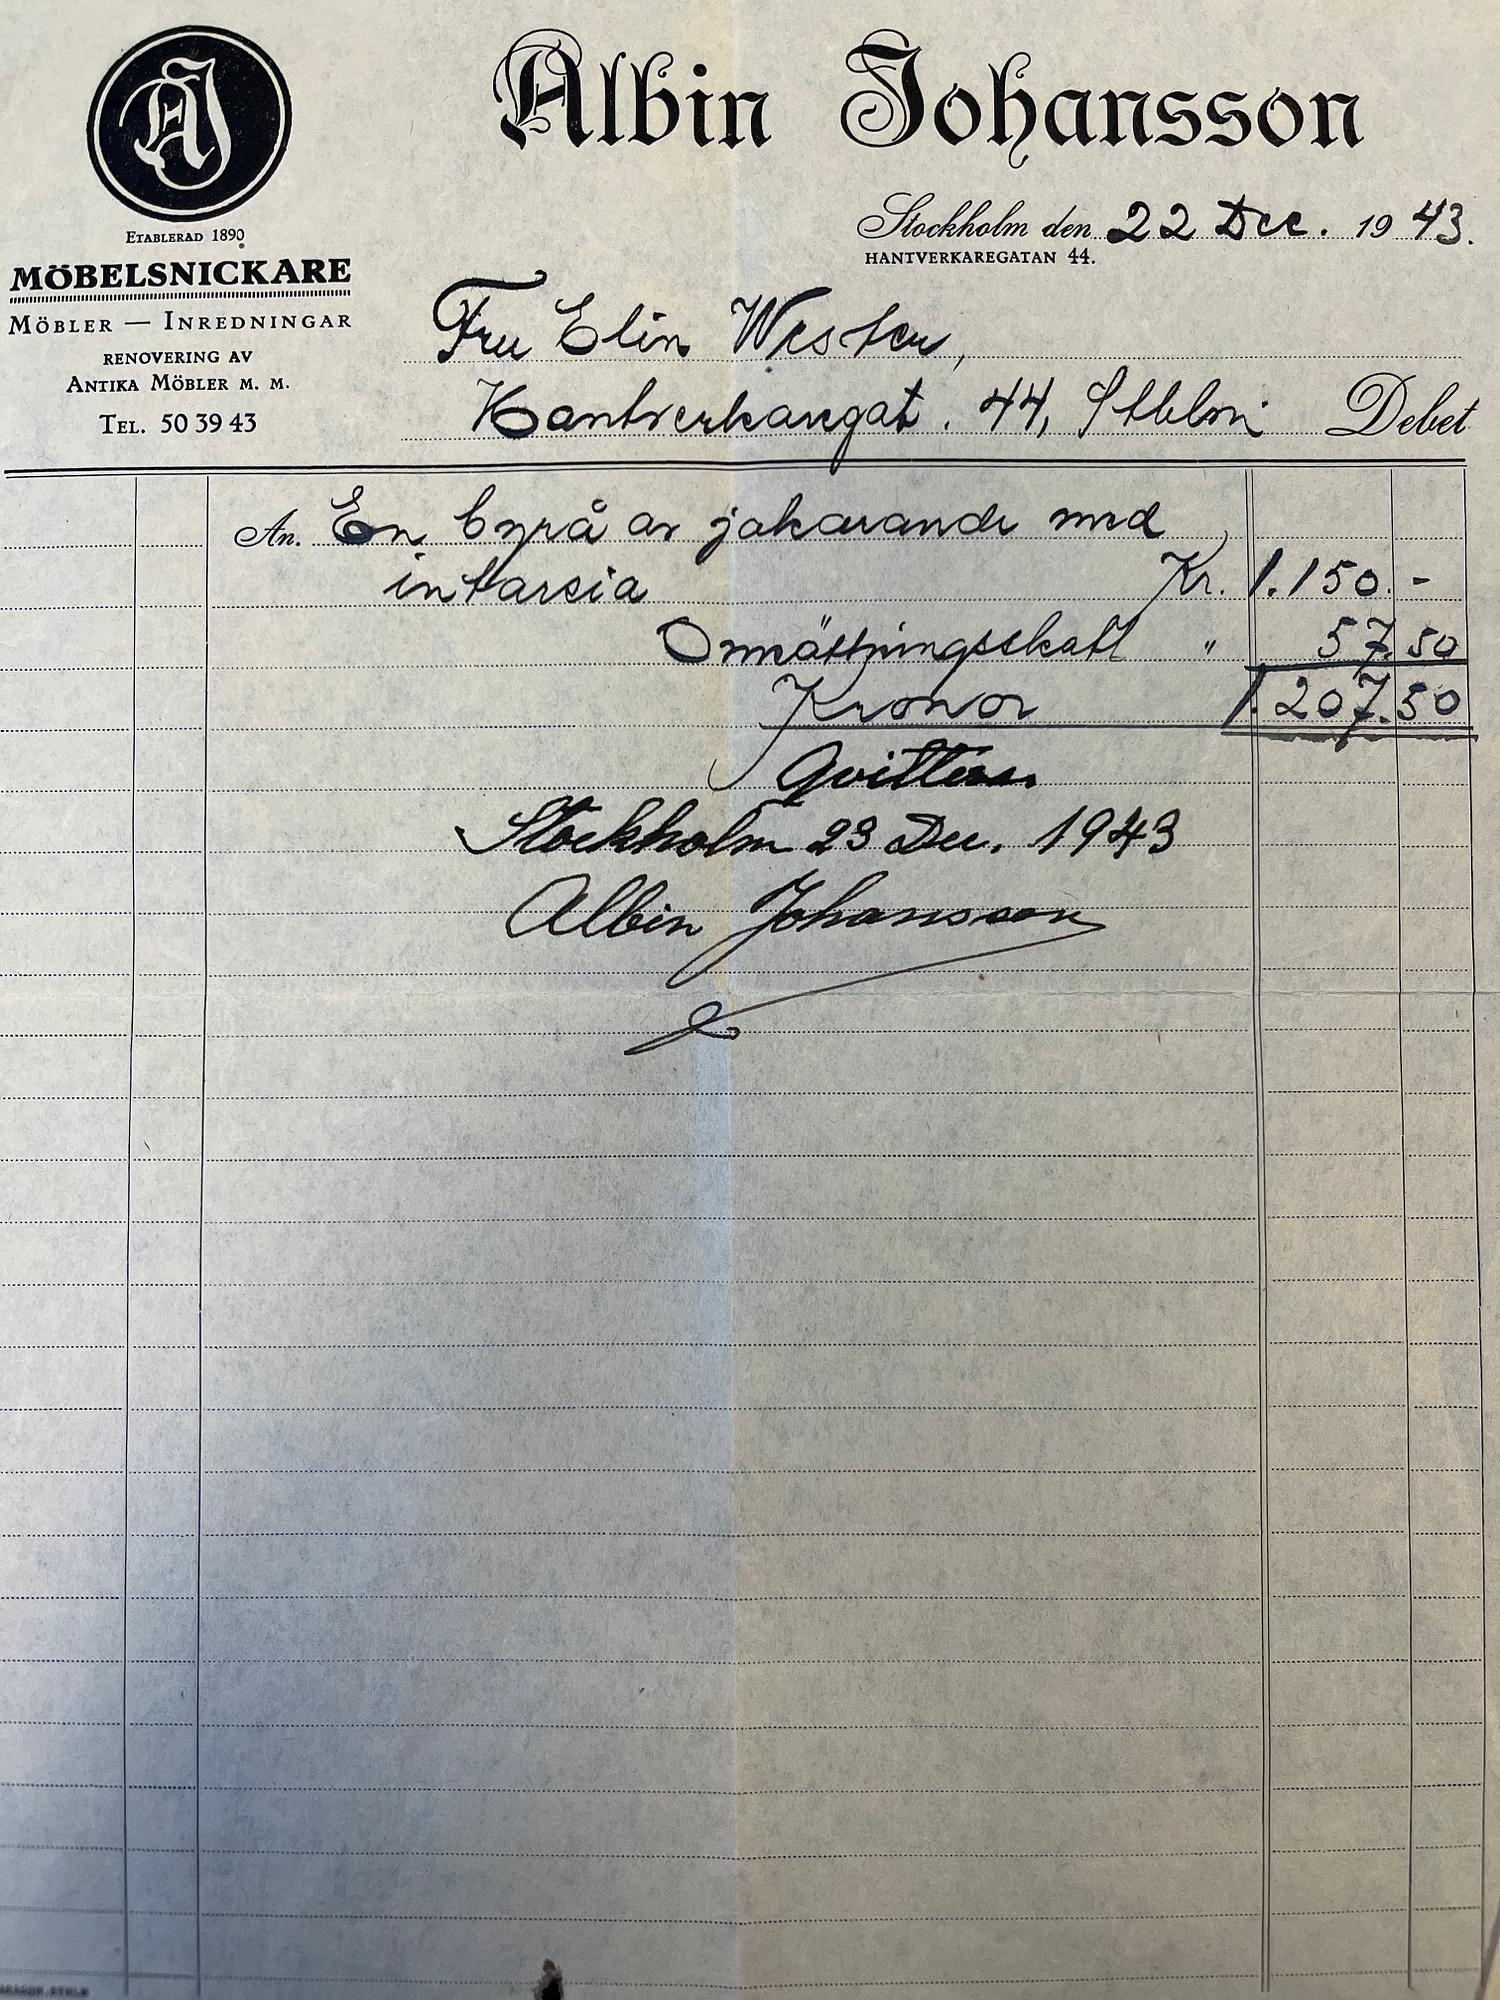 AJ
Albin Johansson
ETABLERAD 1890
MÖBELSNICKARE
MÖBLER — INREDNINGAR
RENOVERING AV
ANTIKA MÖBLER M. M.
TEL. 50 39 43
Stockholm den 22 Dec. 1943.
HANTVERKAREGATAN 44.
Fru Elin Wester,
Hantverkaregat. 44, Sthlm
Debet
An. En byrå av jakaranda med
intarsia Kr. 1.150.-
Omsättningsskatt " 57.50
Kronor 1.207.50
Qvitteras.
Stockholm 23 Dec. 1943
Albin Johansson